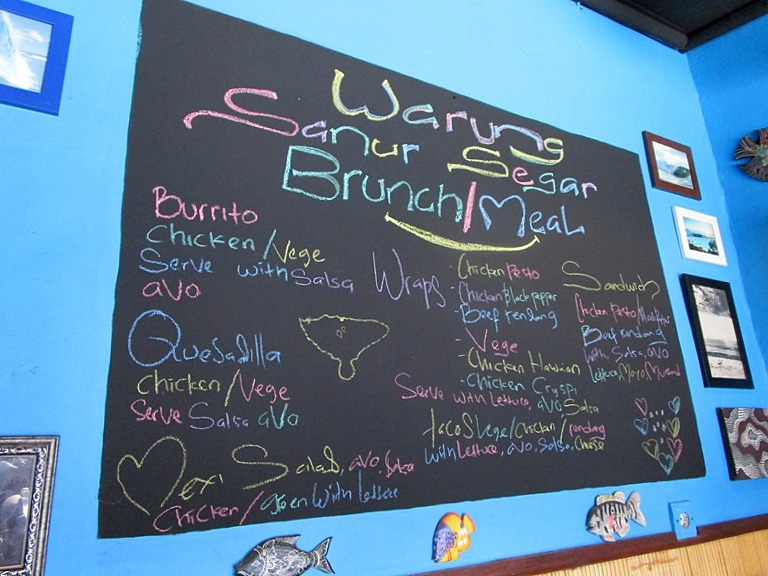 Warung
Sanur Segar
Brunch/Meal
Burrito
Chicken/Vege
Serve with Salsa
avo
Quesadilla
Chicken/Vege
Serve Salsa avo
Mexi Salad, avo, Salsa
Chicken/ with
Wraps
- Chicken Pesto
- Chicken Black pepper
- Beef rendang
- Vege
- Chicken Hawaian
- Chicken Cryspi
Serve with Lettuce, avo, Salsa
tacos Vege/Chicken/rendang
with Lettuce, avo, Salsa, Cheese
Sandwich
Chicken Pesto/
Beef rendang
with Salsa, avo
Lettuce Mayo Mustard